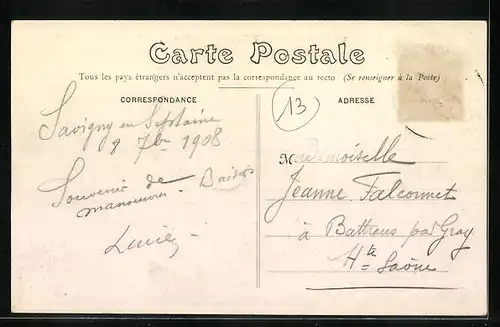 Carte Postale
Tous les pays étrangers n'acceptent pas la correspondance au recto (Se renseigner à la Poste)
CORRESPONDANCE
ADRESSE
13
Savigny en Septaine
9 7bre 1908
Souvenir de
manoeuvres.
Lucien
Mademoiselle
Jeanne Falconnet
à Battrans par Gray
Hte Saône